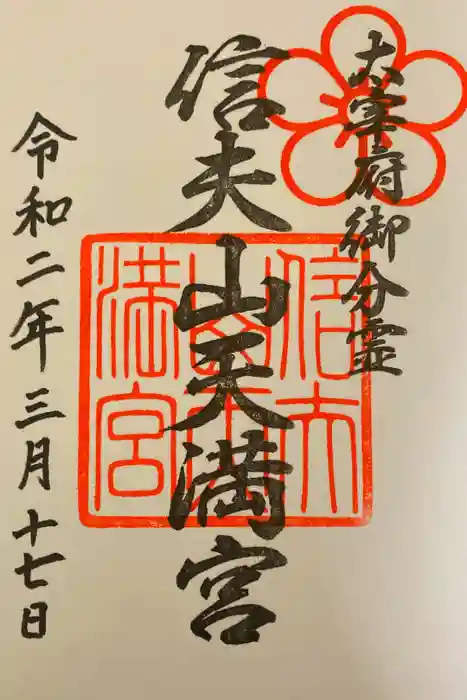 太宰府御分霊
信夫山天満宮
信夫山天満宮
令和二年三月十七日